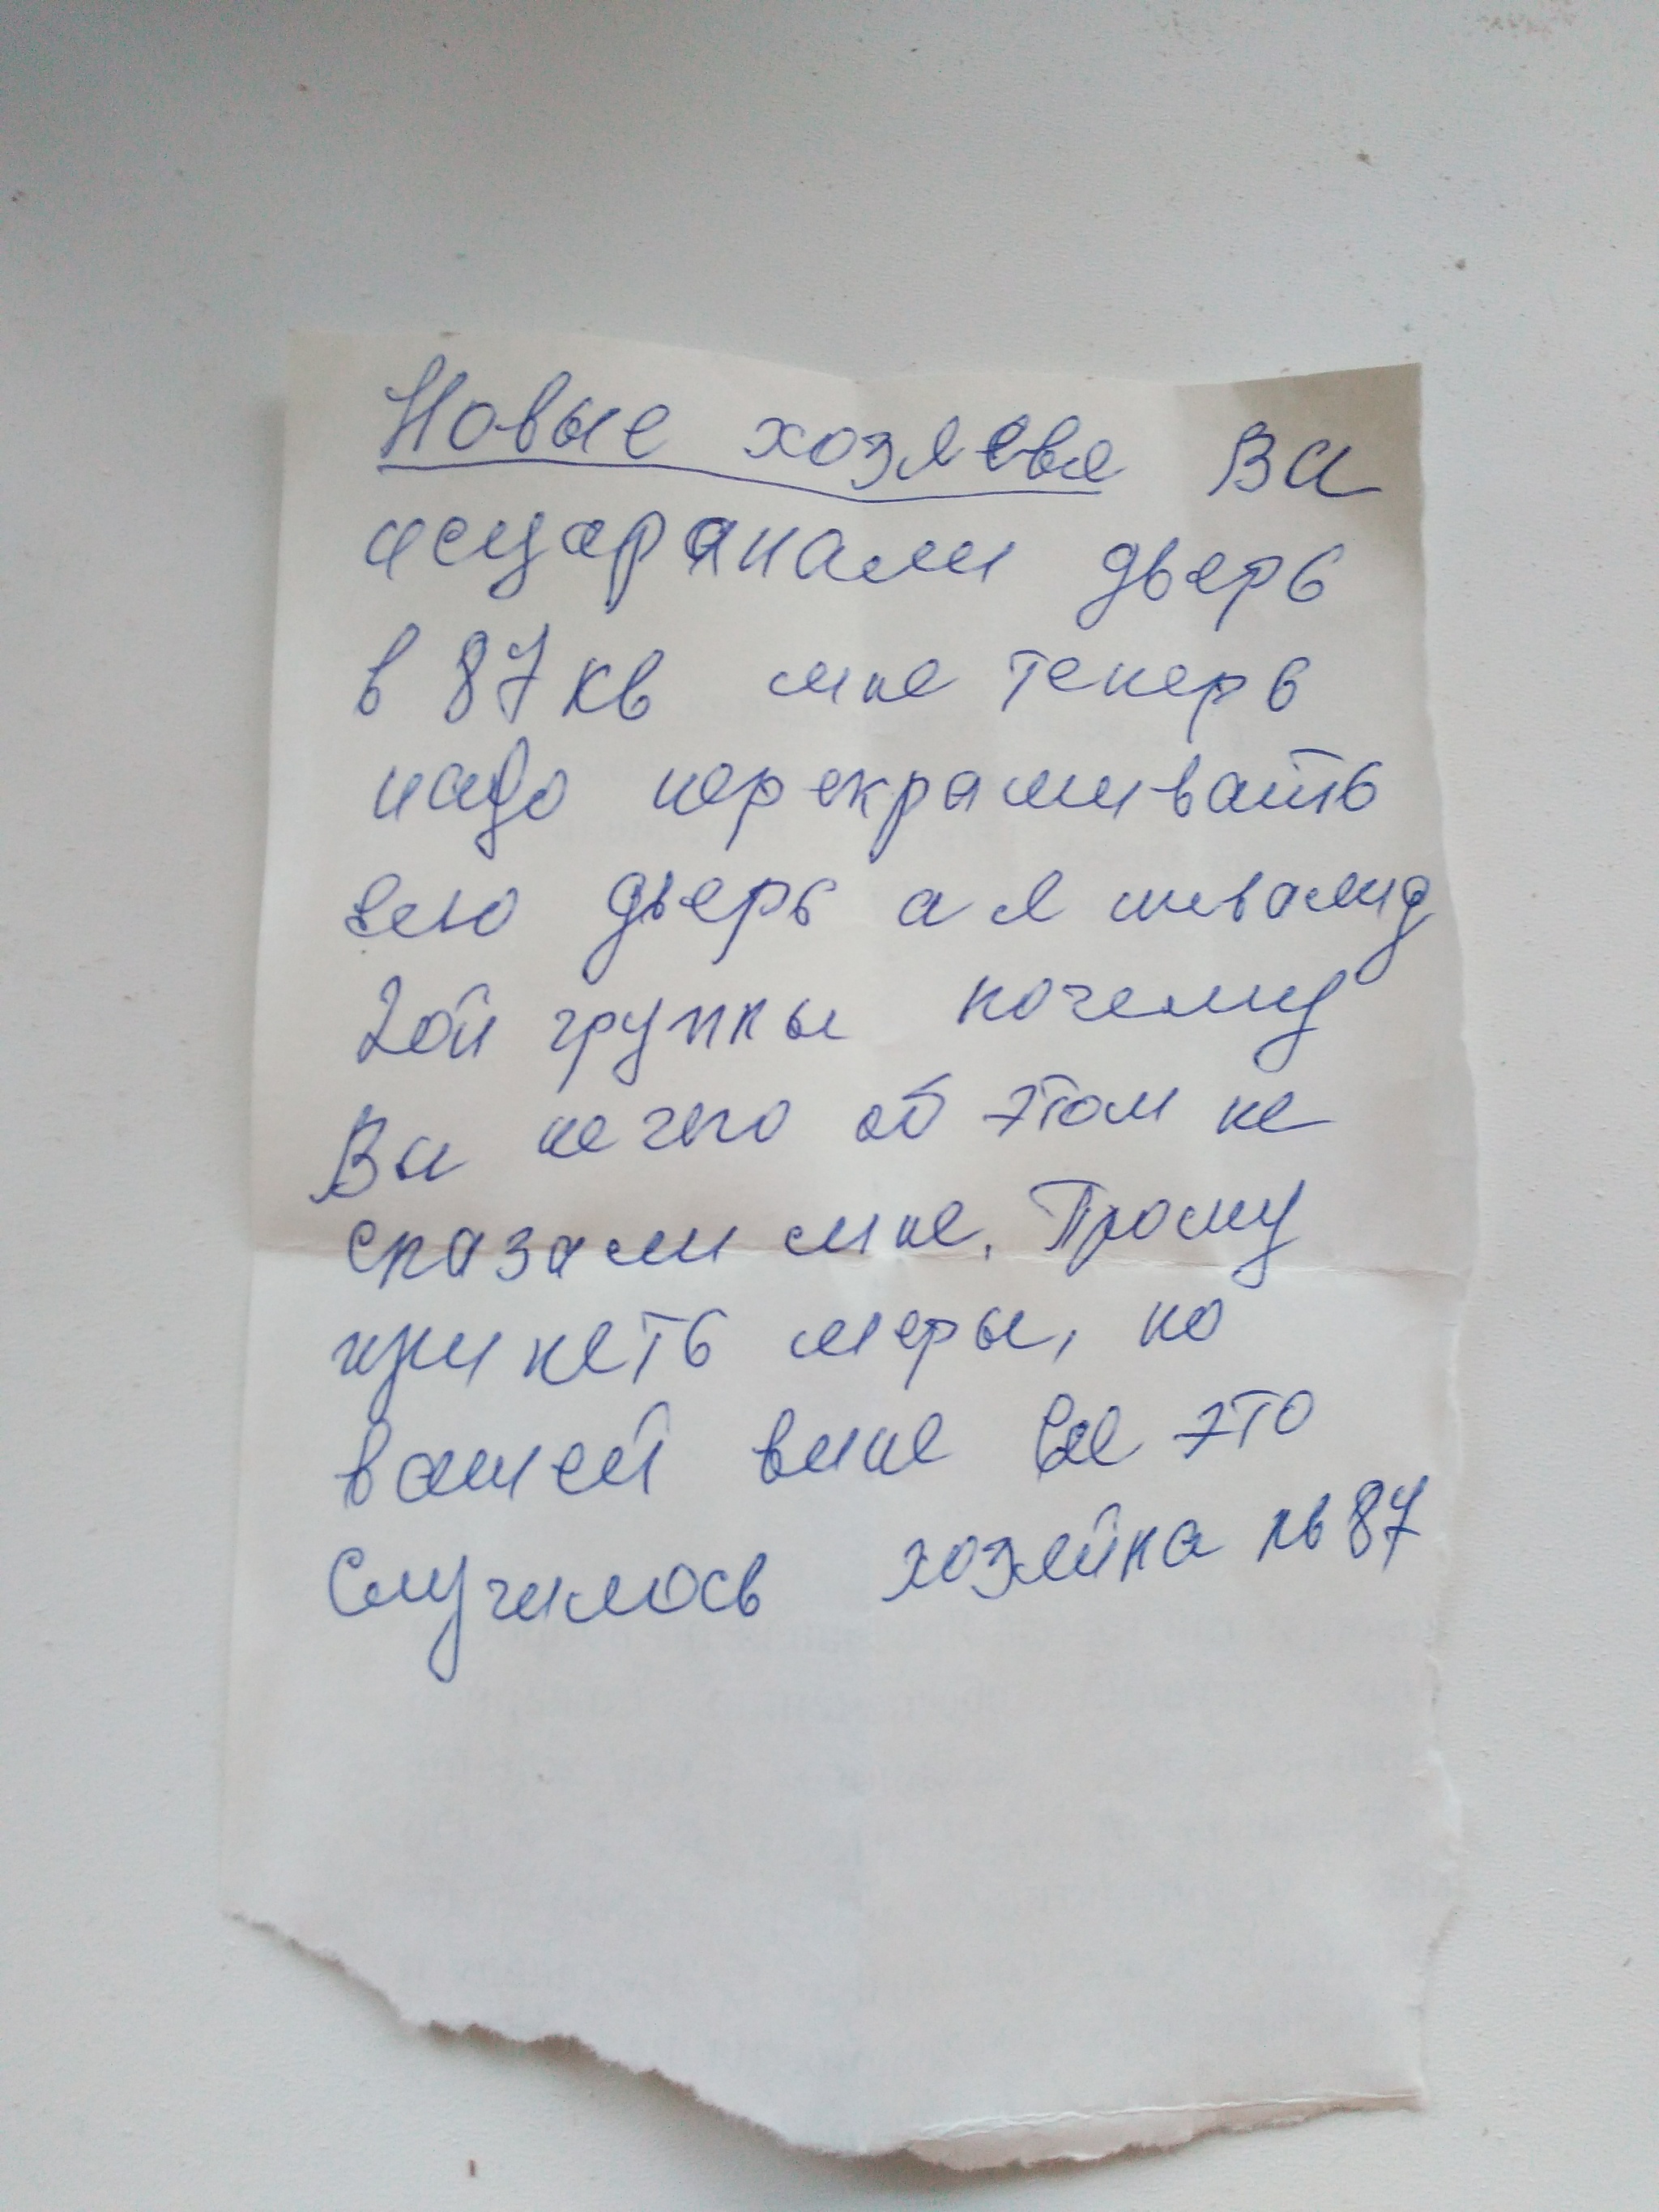 Новые хозяева Вы
исцарапали дверь
в 87 кв мне теперь
надо перекрашивать
всю дверь а я инвалид
2ой группы почему
Вы нечего об этом не
сказали мне. Прошу
принеть меры, по
вашей вине все это
Случилось хозяйка кв 87